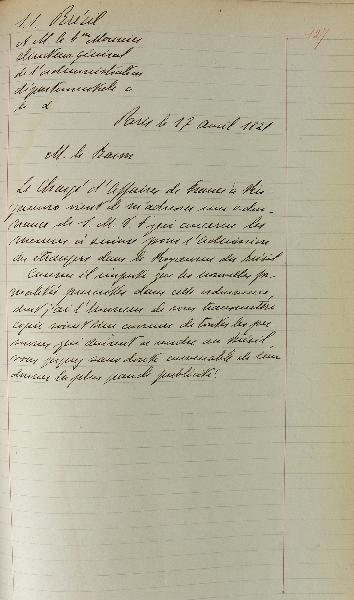 S.S. Brésil
127
A M. le Bon Mounier
directeur général
de l'administration
départementale
&
Paris le 17 avril 1821
M. le Baron
Le Chargé d'Affaires de France à
vient de m'adresser une ordon-
nance de S. M. T. f. qui concerne les
mesures à suivre pour l'admission
des étrangers dans le Royaume du Brésil
Comme il importe que les nouvelles for-
malités prescrites dans cette ordonnance,
dont j'ai l'honneur de vous transmettre
copie soient bien connues de toutes les per
sonnes qui désirent se rendre au Brésil,
vous jugerez sans doute convenable de leur
donner la plus grande publicité.